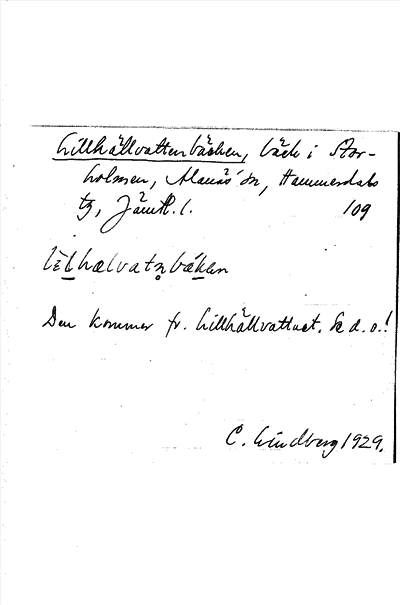 Lillhällvattenbäcken, bäck i Stor-
holmen, Alanäs sn, Hammerdals
tg, Jämtl. l. 109
lìlhælvatn̥bækan
Den kommer fr. Lillhällvattnet. Se d. o.!
C. Lindberg 1929.